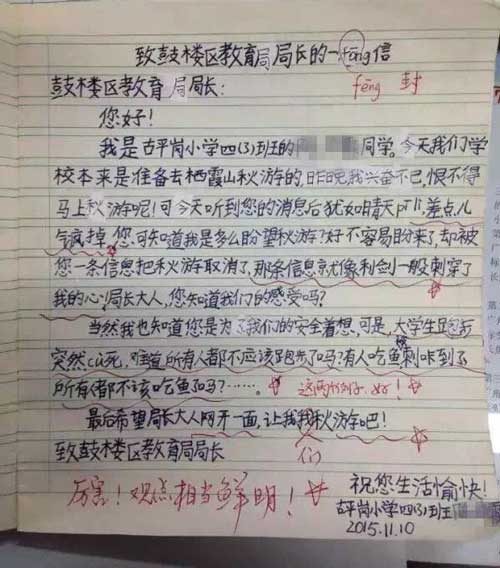 致鼓楼区教育局局长的一fōng信
鼓楼区教育局局长:
fēng 封
您好!
我是古平岗小学四(3)班的 同学。今天我们学
校本来是准备去栖霞山秋游的,昨晚,我兴奋不已,恨不得
马上秋游呢!可今天听到您的消息后犹如晴天pī lì,差点儿
气疯掉。您可知道我是多么盼望秋游?好不容易盼来了,却被
您一条信息把秋游取消了,那条信息就像利剑一般刺穿了
我的心!局长大人,您知道我们的感受吗?
当然我也知道您是为了我们的安全着想,可是,大学生跑步
突然cù死,难道所有人都不应该跑步了吗?有人吃鱼被刺卡到了
所有人都不该吃鱼了吗?……。 这两个例子好!
最后希望局长大人网开一面,让我我秋游吧!
们
致鼓楼区教育局局长
厉害!观点相当鲜明!
祝您生活愉快!
古平岗小学四(3)班
2015.11.10